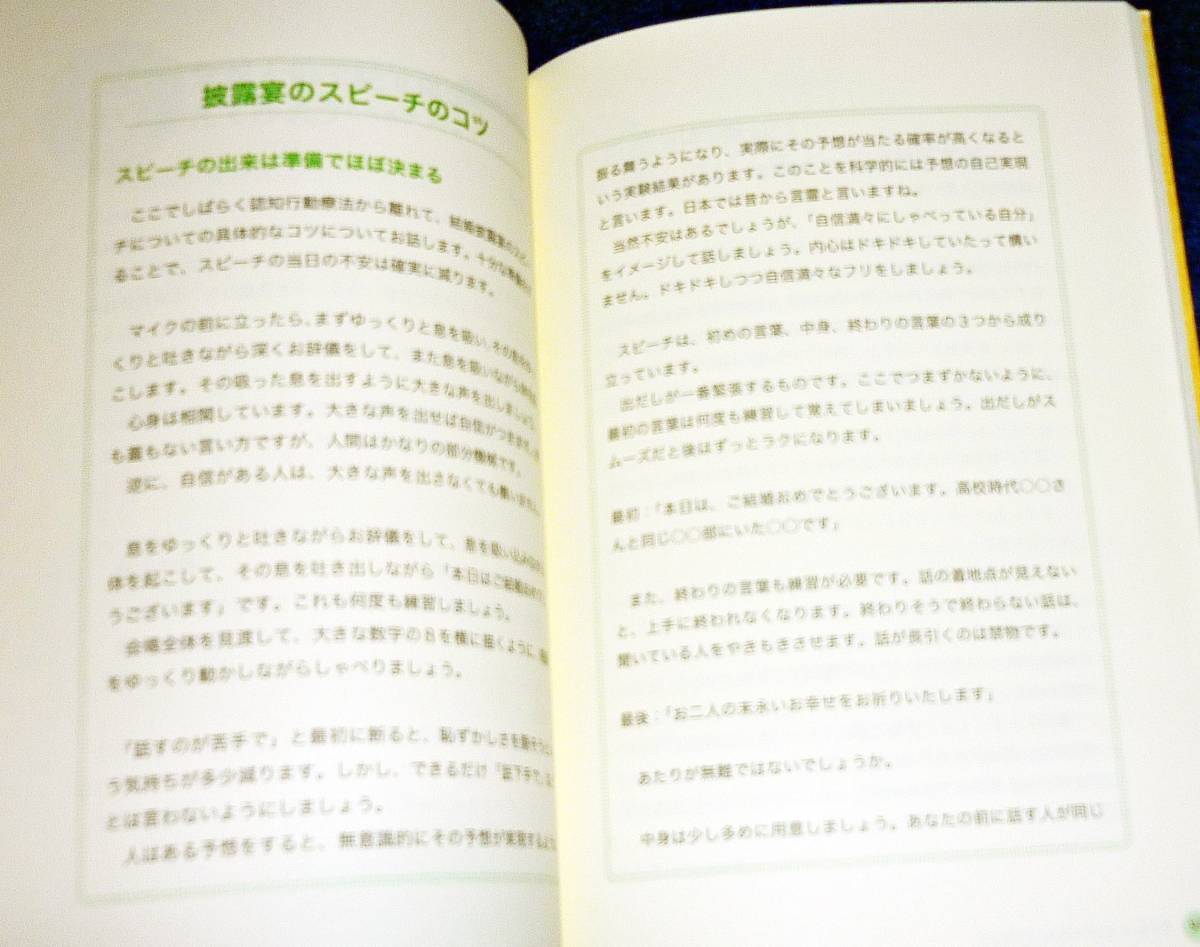 披露宴のスピーチのコツ
スピーチの出来は準備でほぼ決まる
ここでしばらく認知行動療法から離れて、結婚披露宴のスピー
チについての具体的なコツについてお話します。十分な準備
ることで、スピーチの当日の不安は確実に減ります。
マイクの前に立ったら、まずゆっくりと息を吸い、その息を
くりと吐きながら深くお辞儀をして、また息を吸いながら
こします。その吸った息を出すように大きな声を出しましょう。
心身は相関しています。大きな声を出せば自信がつきます。
も蓋もない言い方ですが、人間はかなりの部分機械です。
逆に、自信がある人は、大きな声を出さなくても構いません。
息をゆっくりと吐きながらお辞儀をして、息を吸い込み
体を起こして、その息を吐き出しながら「本日はご結婚おめでと
うございます」です。これも何度も練習しましょう。
会場全体を見渡して、大きな数字の8を横に描くように、
をゆっくり動かしながらしゃべりましょう。
「話すのが苦手で」と最初に断ると、恥ずかしさを隠そうとい
う気持ちが多少減ります。しかし、できるだけ「話下手で」
とは言わないようにしましょう。
人はある予想をすると、無意識的にその予想が実現するよう
振る舞うようになり、実際にその予想が当たる確率が高くなると
いう実験結果があります。このことを科学的には予想の自己実現
と言います。日本では昔から言霊と言いますね。
当然不安はあるでしょうが、「自信満々にしゃべっている自分」
をイメージして話しましょう。内心はドキドキしていたって構い
ません。ドキドキしつつ自信満々なフリをしましょう。
スピーチは、初めの言葉、中身、終わりの言葉の3つから成り
立っています。
出だしが一番緊張するものです。ここでつまずかないように、
最初の言葉は何度も練習して覚えてしまいましょう。出だしがス
ムーズだと後はずっとラクになります。
最初：「本日は、ご結婚おめでとうございます。高校時代○○さ
んと同じ○○部にいた○○です」
また、終わりの言葉も練習が必要です。話の着地点が見えない
と、上手に終われなくなります。終わりそうで終わらない話は、
聞いている人をやきもきさせます。話が長引くのは禁物です。
最後：「お二人の末永いお幸せをお祈りいたします」
あたりが無難ではないでしょうか。
中身は少し多めに用意しましょう。あなたの前に話す人が同じ